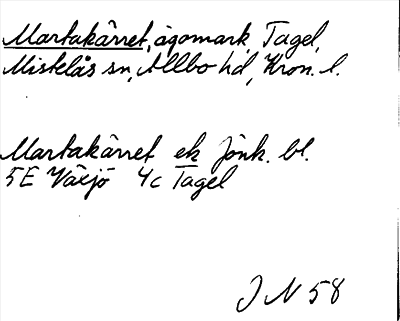 Martakärret, ägomark, Tagel,
Mistelås sn, Allbo hd, Kron. l.
Martakärret ek Jönk. bl.
5E Växjö 4c Tagel
J N 58